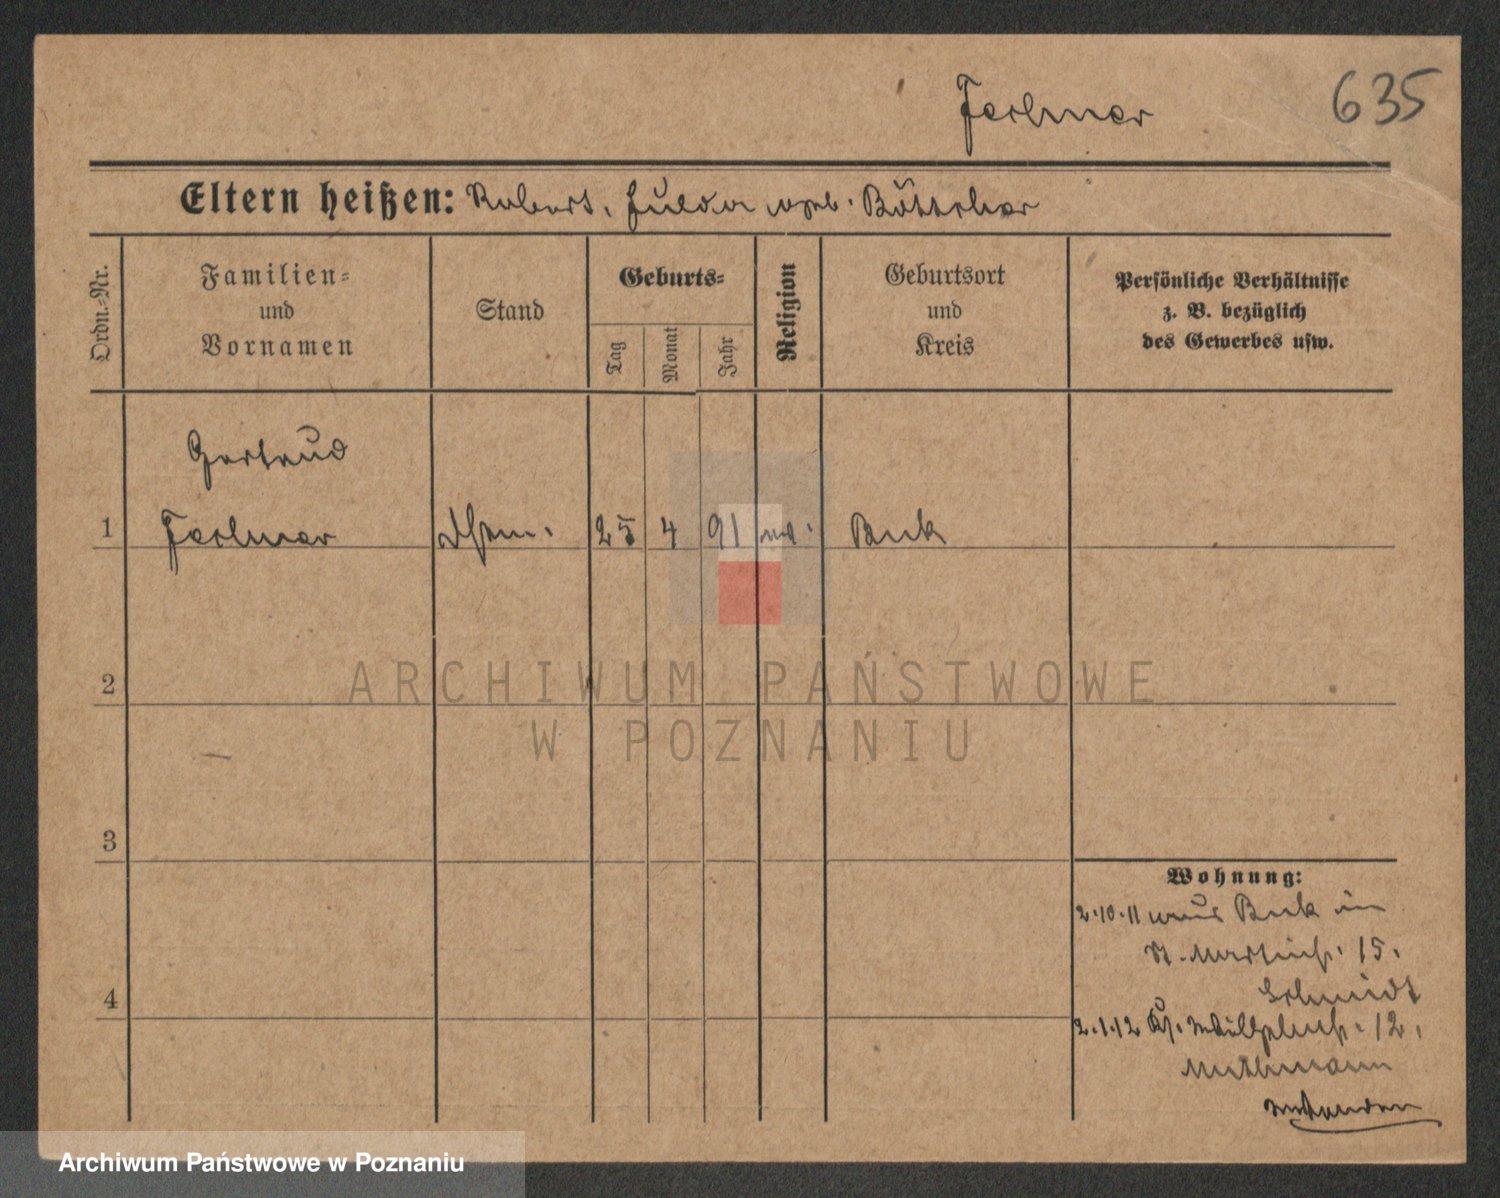 635
Eltern heißen: Robert, Hulda geb. Böttcher
Ordn.-Nr.
Familien-
und
Vornamen
Stand
Geburts-
Tag
Monat
Jahr
Religion
Geburtsort
und
Kreis
Persönliche Verhältnisse
z. B. bezüglich
des Gewerbes usw.
Gertrud
1
25 4 91
Buk
2
ARCHIWUM PAŃSTWOWE
W POZNANIU
3
Wohnung:
2.10.11 aus Buk in
St. Martinstr. 15.
Schmidt
4
2.1.12 12.
Muthmann
Archiwum Państwowe w Poznaniu